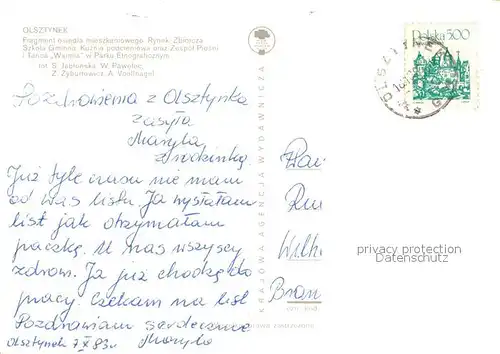 OLSZTYNEK
Fragment osiedla mieszkaniowego. Rynek. Zbiorcza
Szkoła Gminna. Kuźnia podcieniowa oraz Zespół Pieśni
i Tańca „Warmia” w Parku Etnograficznym
fot. S. Jabłońska, W. Pawelec,
Z. Żyburtowicz, A. Voellnagel
Polska 500
OLSZTYNEK
Pozdrowienia z Olsztynka
zasyła
Maryla
z rodzinką
Już tyle czasu nie mam
od was listu. Ja wysłałam
list jak otrzymałam
paczkę. U nas wszyscy
zdrowi. Ja już chodzę do
pracy. Czekam na list
Pozdrawiam serdecznie
Olsztynek 7 X 83r Maryla
KRAJOWA AGENCJA WYDAWNICZA
prawa zastrzeżone
privacy protection
Datenschutz